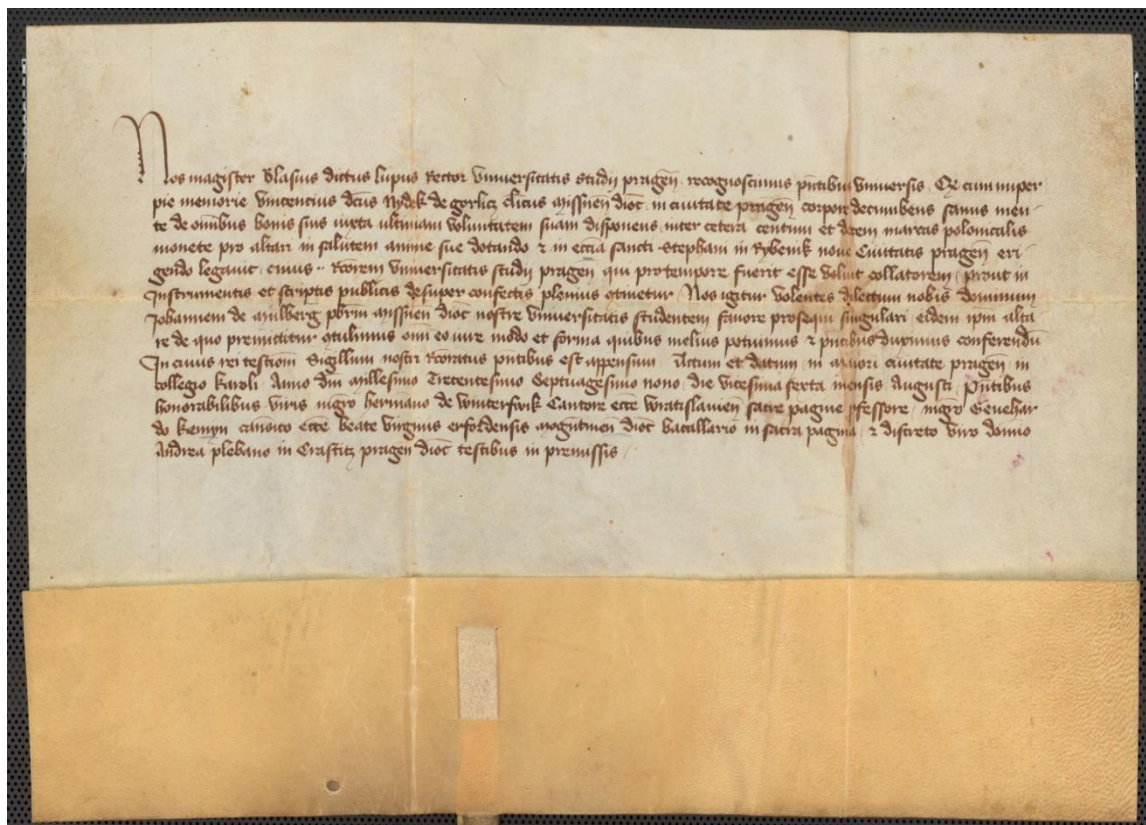 Nos magister Blasius dictus lupus Rector Vniuersitatis studij pragen̄ recognoscimus pn̄tibus vniuersis Qr̄ cum nuper
pie memorie vincencius dc̄us Nydek de gorlicz cl̄icus Missnen̄ dioc̄ in ciuitate pragen̄ corpore decumbens sanus men
te de om̄ibus bonis suis iuxta vltimam voluntatem suam disponens inter cetera centum et decem marcas polonicalis
monete pro altari in salutem anime sue dotando ⁊ in ecc̄ia sancti Stephani in Rybnik noue Ciuitatis pragen̄ eri
gendo legauit cuius ·· Rc̄orem vniuersitatis studij pragen̄ qui pro tempore fuerit esse voluit collatorem prout in
Instrumentis et scriptis publicis desuper confectis plenius ꝯtinetur Nos igitur volentes dilectum nobis dominum
Johannem de Mulberg pb̄rm Missnen̄ dioc̄ nostre vniuersitatis studentem fauore prosequi singulari eidem ip̄m alta
re de quo premittitur ꝯtulimus om̄i eo iure modo et forma quibus melius potuimus ⁊ pn̄tibus duximus conferendū
In cuius rei testiom̄ Sigillum nostri Rc̄oratus pn̄tibus est appensum Actum et datum in maiori ciuitate pragen̄ in
collegio karoli Anno dn̄i Millesimo Trecentesimo Septuagesimo nono die vicesima sexta mensis Augusti Pn̄tibus
honorabilibus viris mḡro hermano de winterswik Cantore ecc̄e wratislauien̄ sacre pagine ꝓfessore mḡro Geuehar
do canōico ecc̄e beate virginis erfoldensis Mogutinen̄ dioc̄ baccallario in sacra pagina ⁊ discreto viro domno
Andrea plebano in Crastitz pragen̄ dioc̄ testibus in premissis